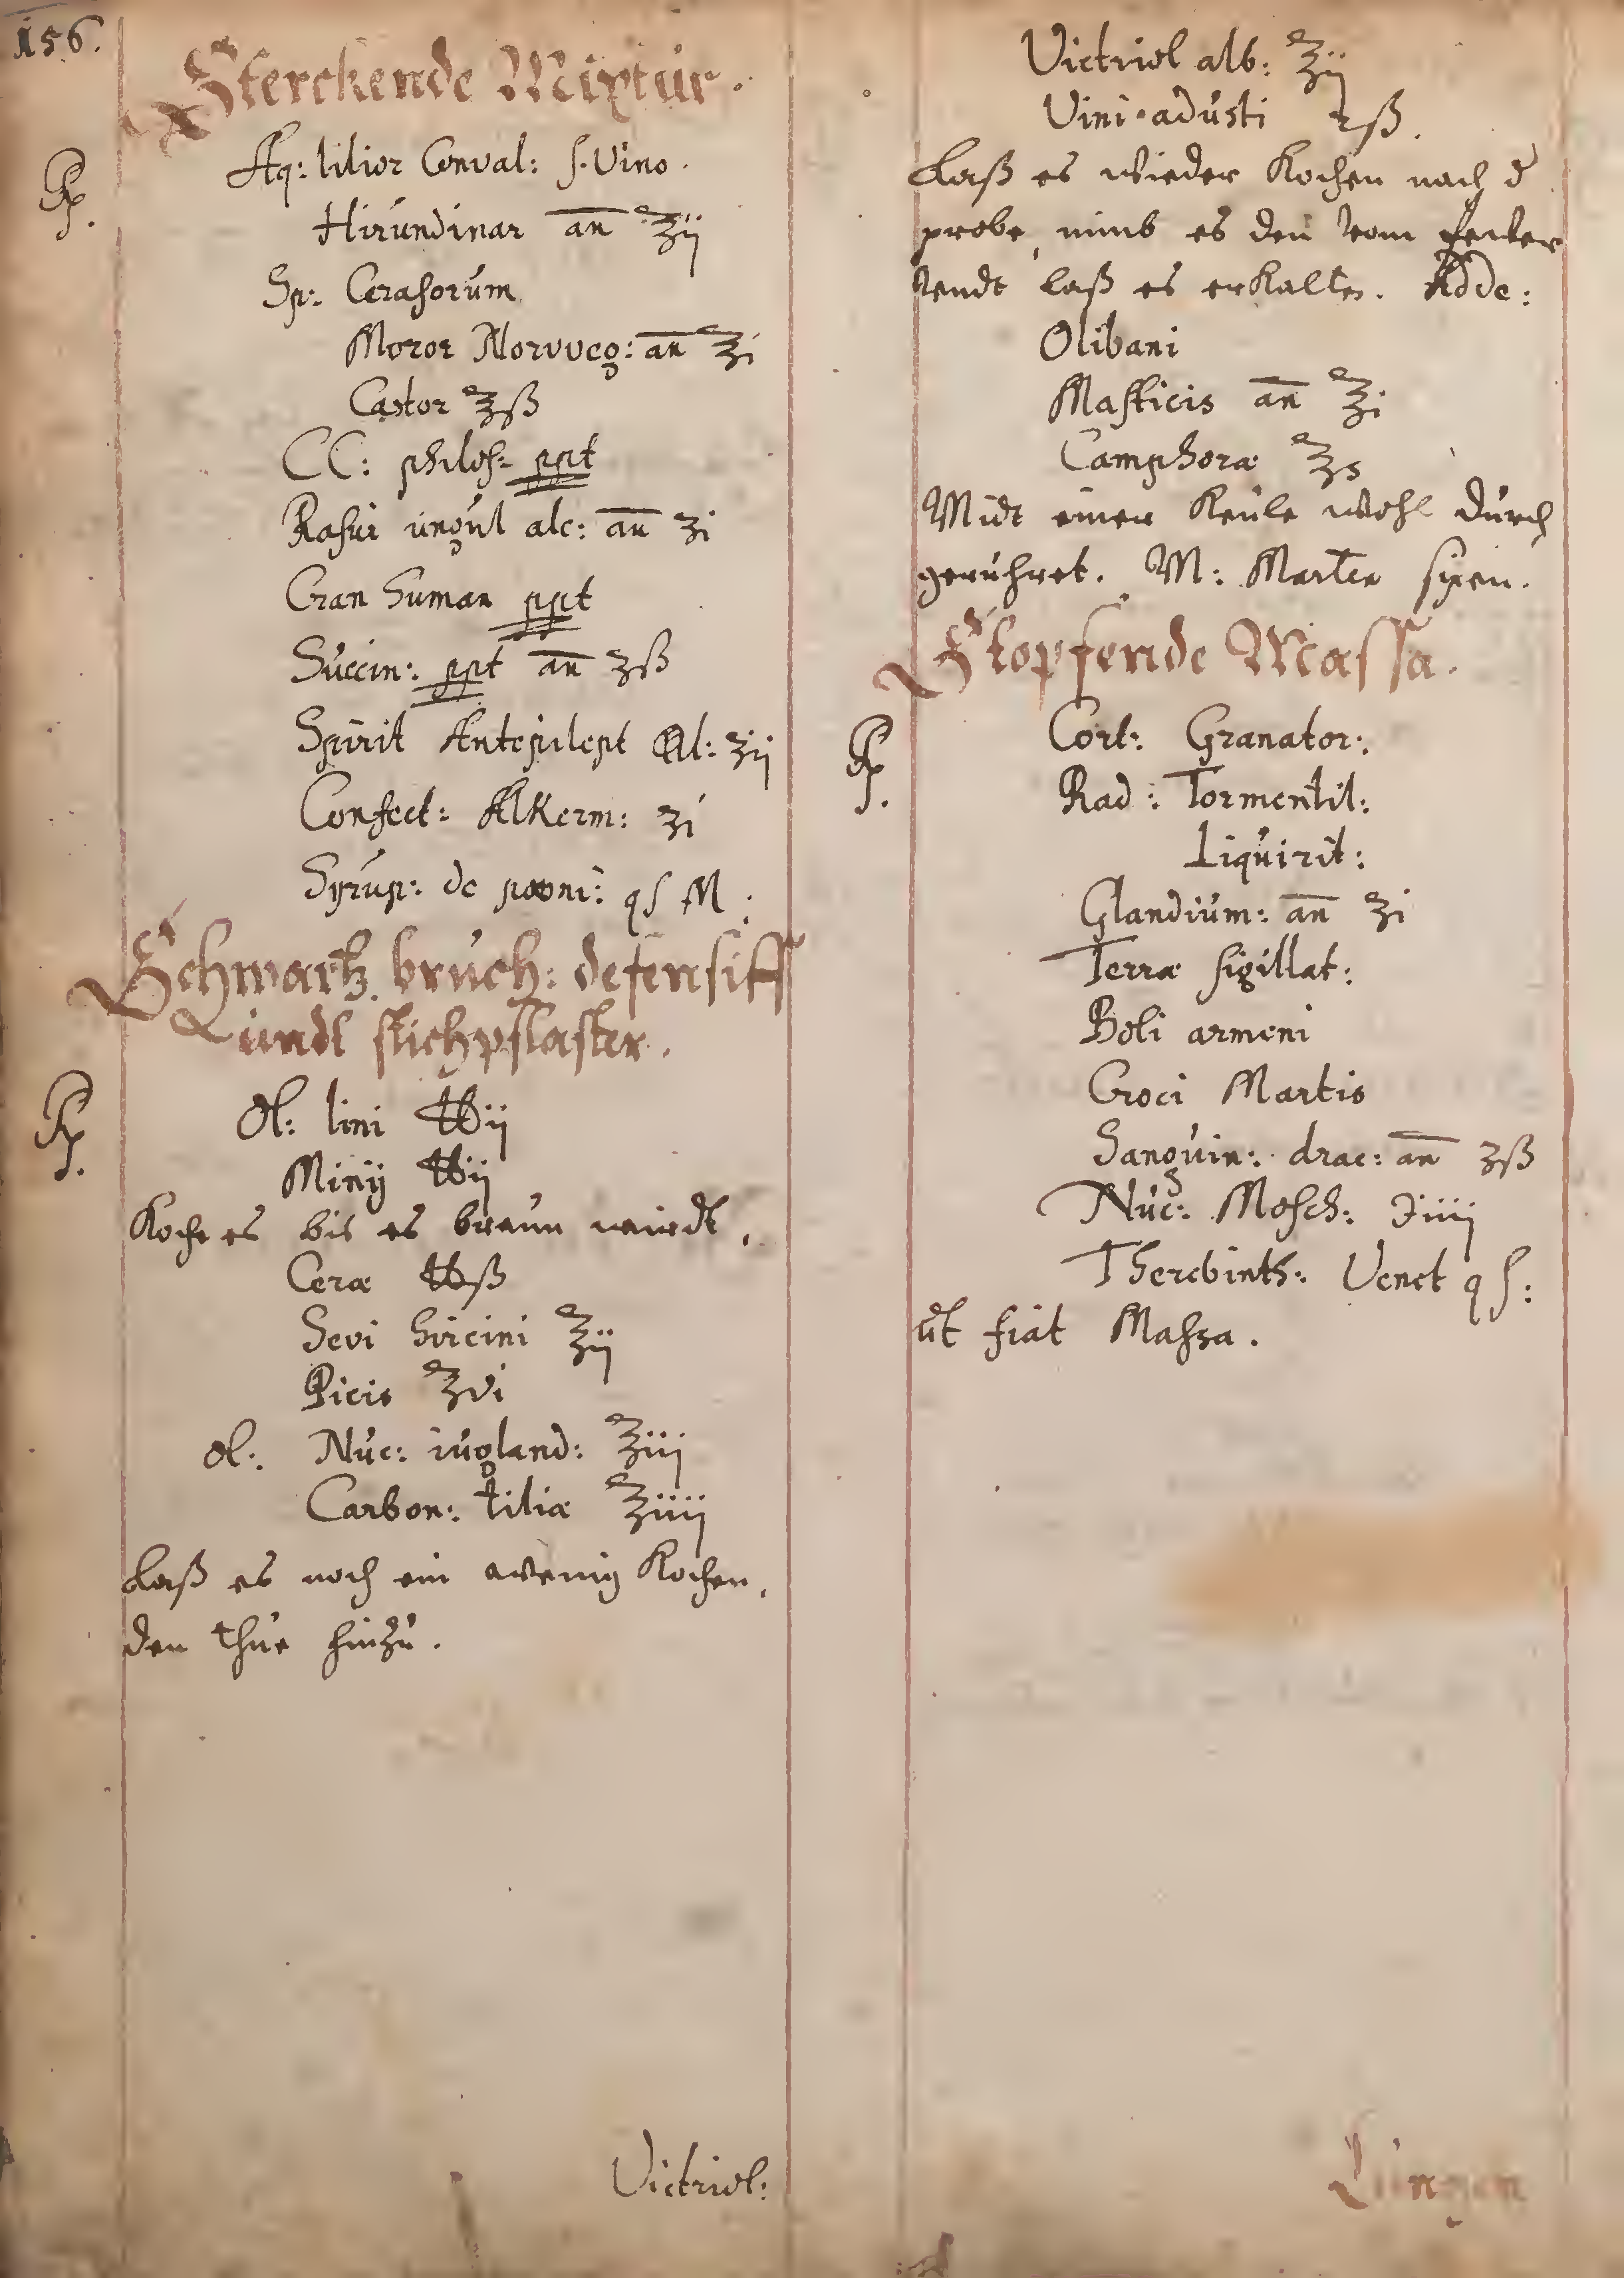 156.
Sterckende Mixtur.
Rp.
Aq: lilior Conval: s. Vino.
Hirundinar an ℥ij
Sp: Cerasorum
Moror Norvveg: an ℥i
Castor ℥ß
CC: philos: ppt
Rasur ungul alc: an ʒi
Cran human ppt
Succin: ppt an ʒß
Spirit Antepilept ʒij
Confect: Alkerm: ʒi
Syrup: de poeoni: qs M:
Schwartz bruch: defensiff
undt stichpflaster.
Rp.
Ol: lini ℔ij
Minij ℔ij
Koche es bis es braun wirdt,
Ceræ ℔ß
Sevi hircini ℥ij
Picis ℥vi
Ol: Nuc: iugland: ℥iij
Carbon: tiliæ ℥iiij
Laß es noch ein wenig Kochen,
den thue hinzu.
Victriol:
Victriol alb: ℥ij
Vini adusti ß.
Laß es wieder Kochen nach d
probe, nimb es den vom feuter
undt laß es erkalten. Adde:
Olibani
Masticis an ℥i
Camphoræ ℥s
Midt einer Keule wohl durch
gerühret. M: Marten
Stopfende Massa.
Rp.
Cort: Granator:
Rad: Tormentil:
Liquirit:
Glandium: an ʒi
Terræ sigillat:
Boli armeni
Croci Martis
Sanguin: drac: an ʒß
Nuc: Mosch: ℈iiij
Therebinth: Venet qs:
ut fiat Massa.
Lungen